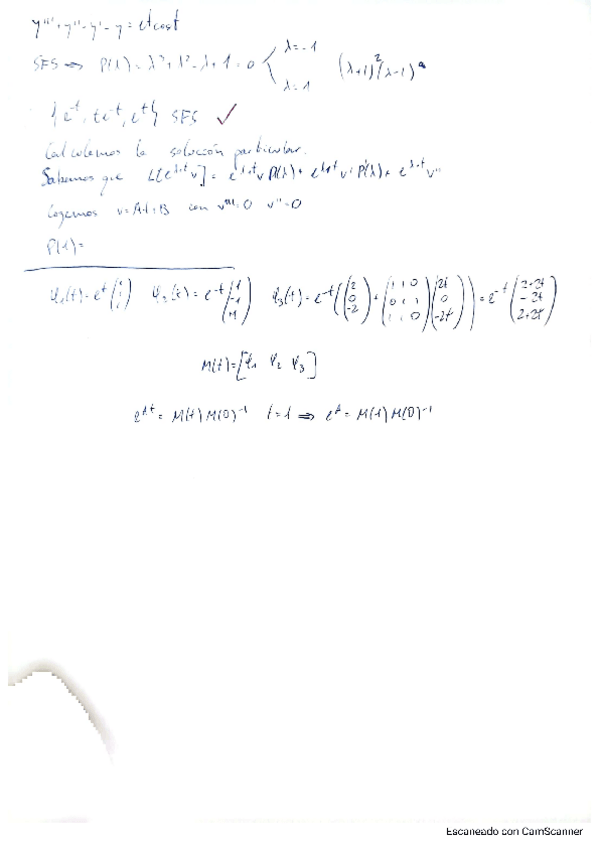 y''' + y'' - y' - y = e^t cos t
SFS ⇒ P(λ) = λ³ + λ² - λ + 1 = 0 λ = -1 λ = 1 (λ+1)²(λ-1)
{e^-t, te^-t, e^t} SFS ✓
Calculemos la solución particular.
Sabemos que L[e^λot v] = e^λot v P(λ) + e^λot v' P'(λ) + e^λot v''
Cogemos v = At + B con v''' = 0 v'' = 0
P(1) =
φ₁(t) = e^t (1 1 1) φ₂(t) = e^-t (1 -1 +1) φ₃(t) = e^-t ((2 0 -2) + (1 1 0 0 1 1 1 1 0)(2t 0 -2t)) = e^-t (2+2t -2t 2+2t)
M(t) = [φ₁ φ₂ φ₃]
e^At = M(t) M(0)^-1 t = 1 ⇒ e^A = M(1) M(0)^-1
Escaneado con CamScanner